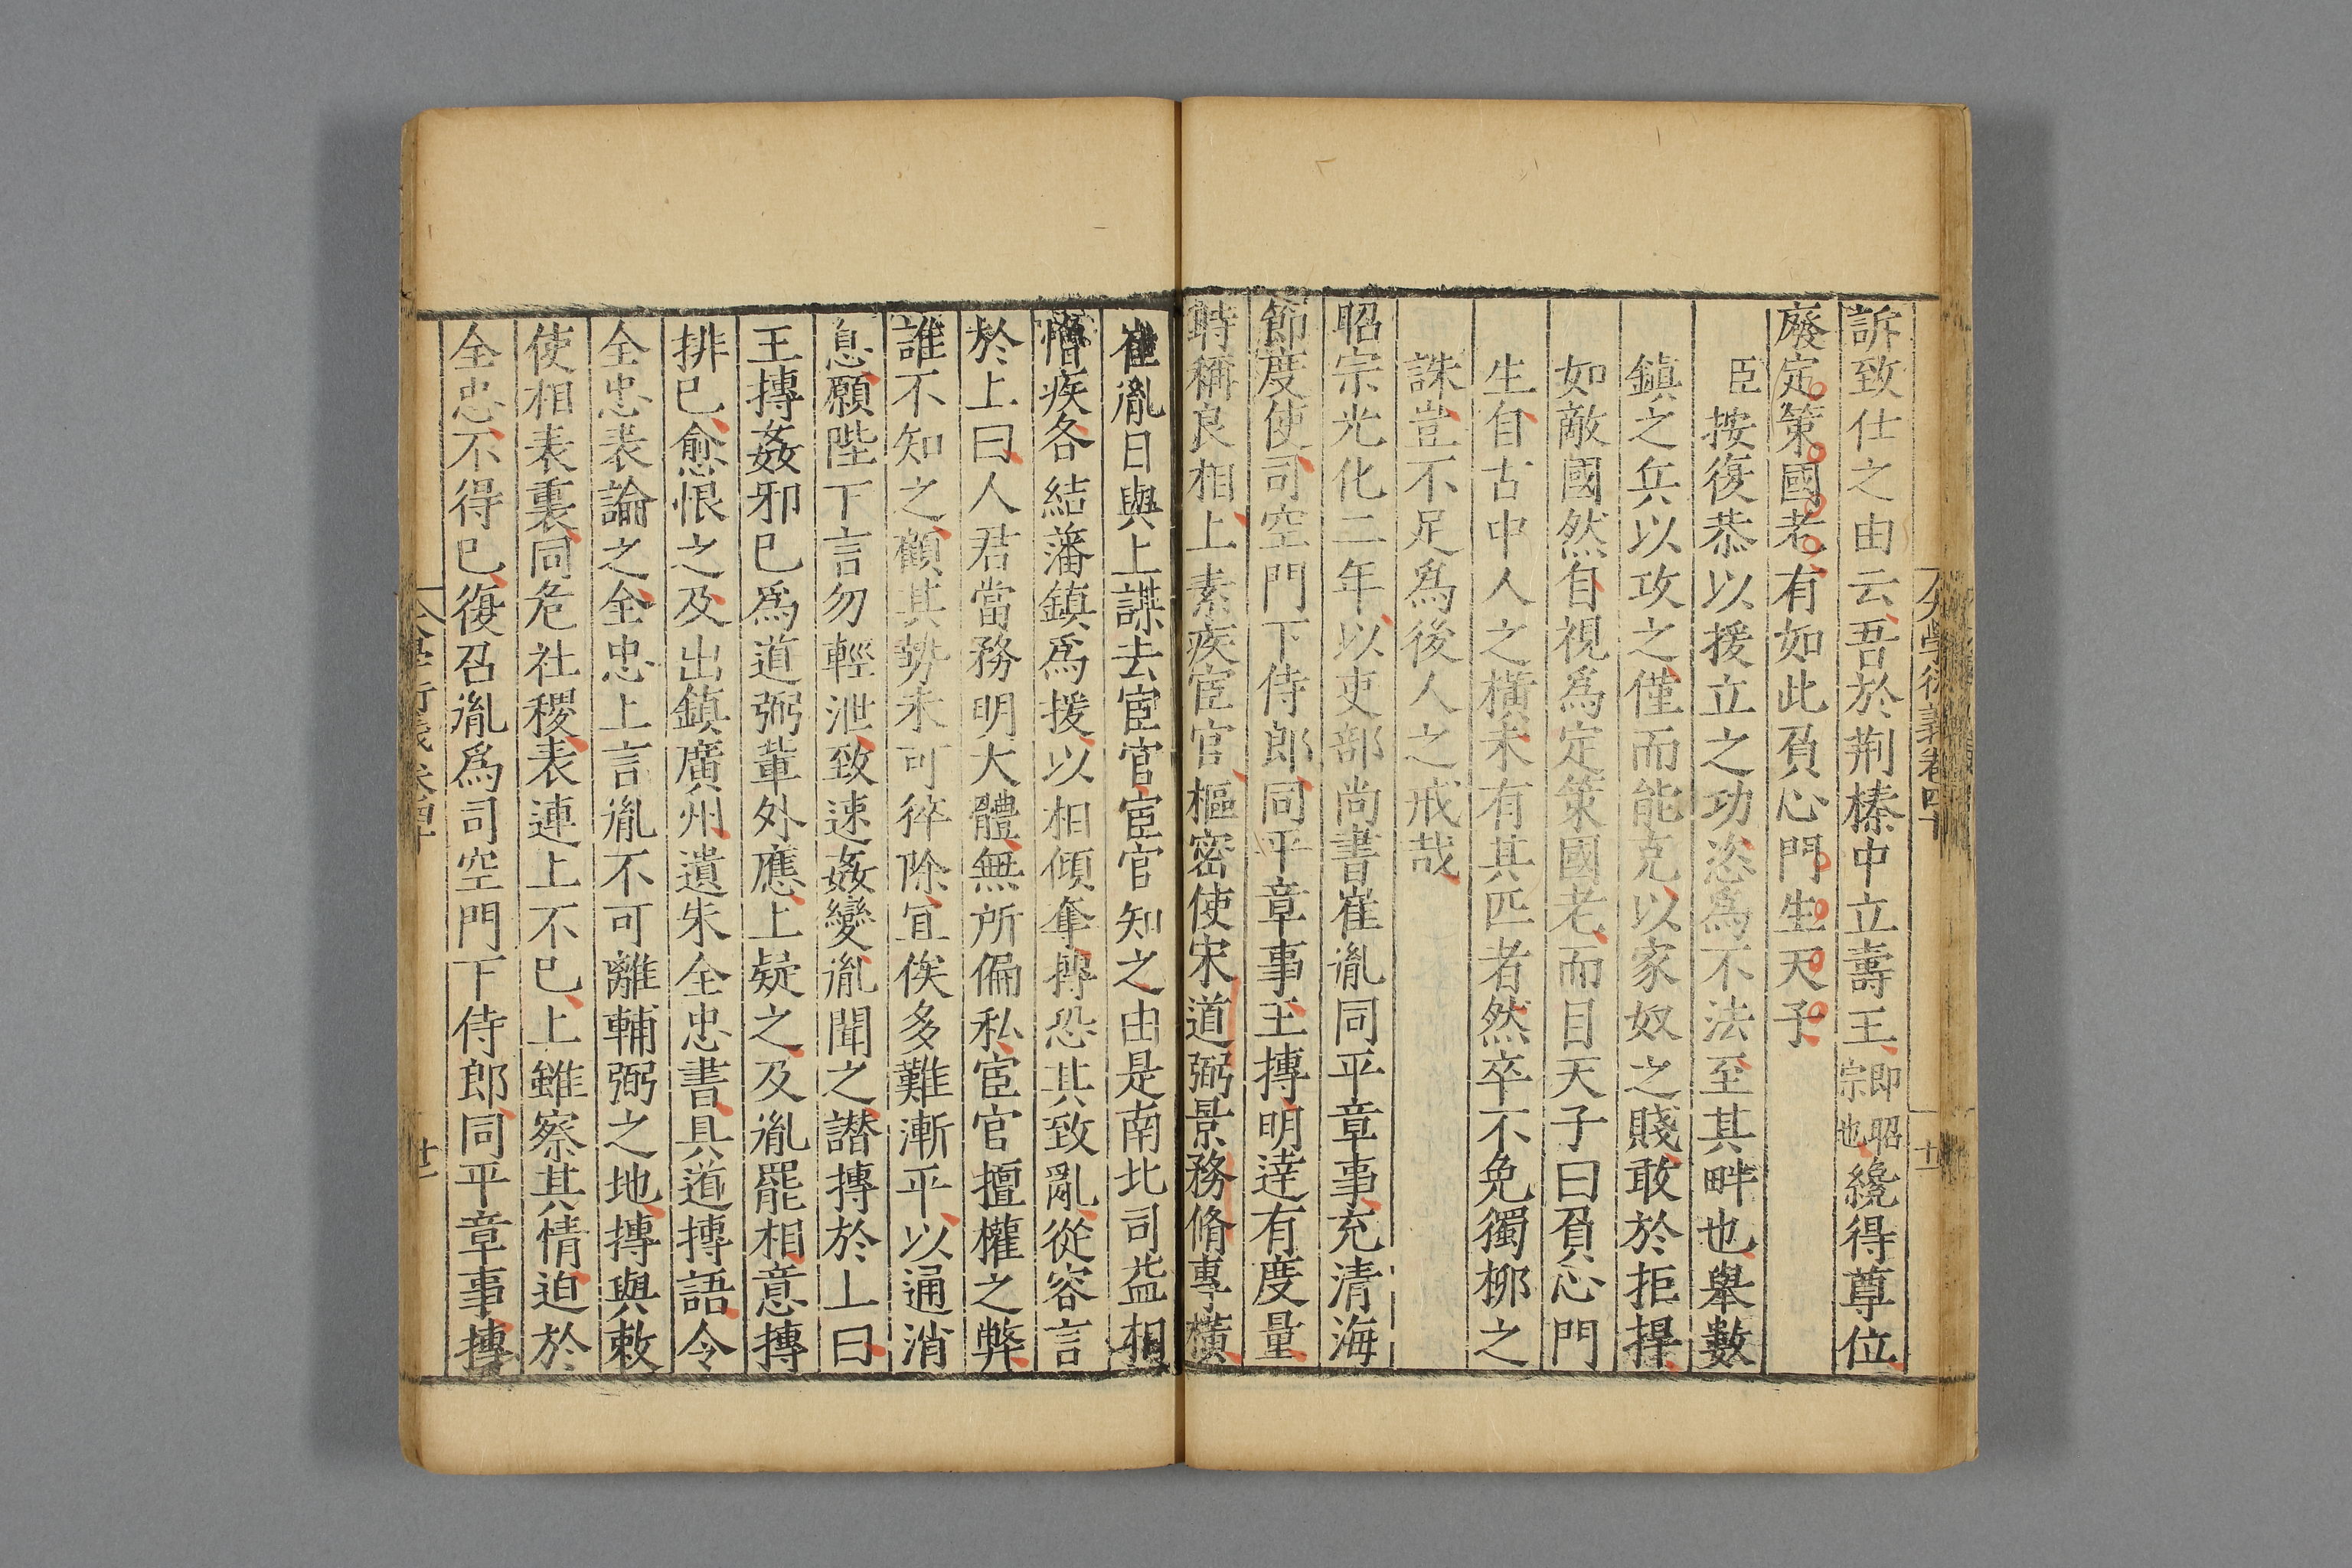 大學衍義卷四十
十一
訴致仕之由云吾於荆榛中立壽王即昭宗也纔得尊位
廢定策國老有如此負心門生天子
臣按復恭以援立之功恣爲不法至其畔也舉數
鎮之兵以攻之僅而能克以家奴之賤敢於拒捍
如敵國然自視爲定策國老而目天子曰負心門
生自古中人之橫未有其匹者然卒不免獨柳之
誅豈不足爲後人之戒哉
昭宗光化二年以吏部尚書崔胤同平章事充清海
節度使司空門下侍郎同平章事王摶明達有度量
時稱良相上素疾宦官樞密使宋道弼景務脩專橫
崔胤日與上謀去宦官宦官知之由是南北司益相
憎疾各結藩鎮爲援以相傾奪摶恐其致亂從容言
於上曰人君當務明大體無所偏私宦官擅權之弊
誰不知之顧其勢未可猝除宜俟多難漸平以通消
息願陛下言勿輕泄致速姦變胤聞之譖摶於上曰
王摶姦邪已爲道弼輩外應上疑之及胤罷相意摶
排已愈恨之及出鎮廣州遺朱全忠書具道摶語令
全忠表論之全忠上言胤不可離輔弼之地摶與敕
使相表裏同危社稷表連上不已上雖察其情迫於
全忠不得已復召胤爲司空門下侍郎同平章事摶